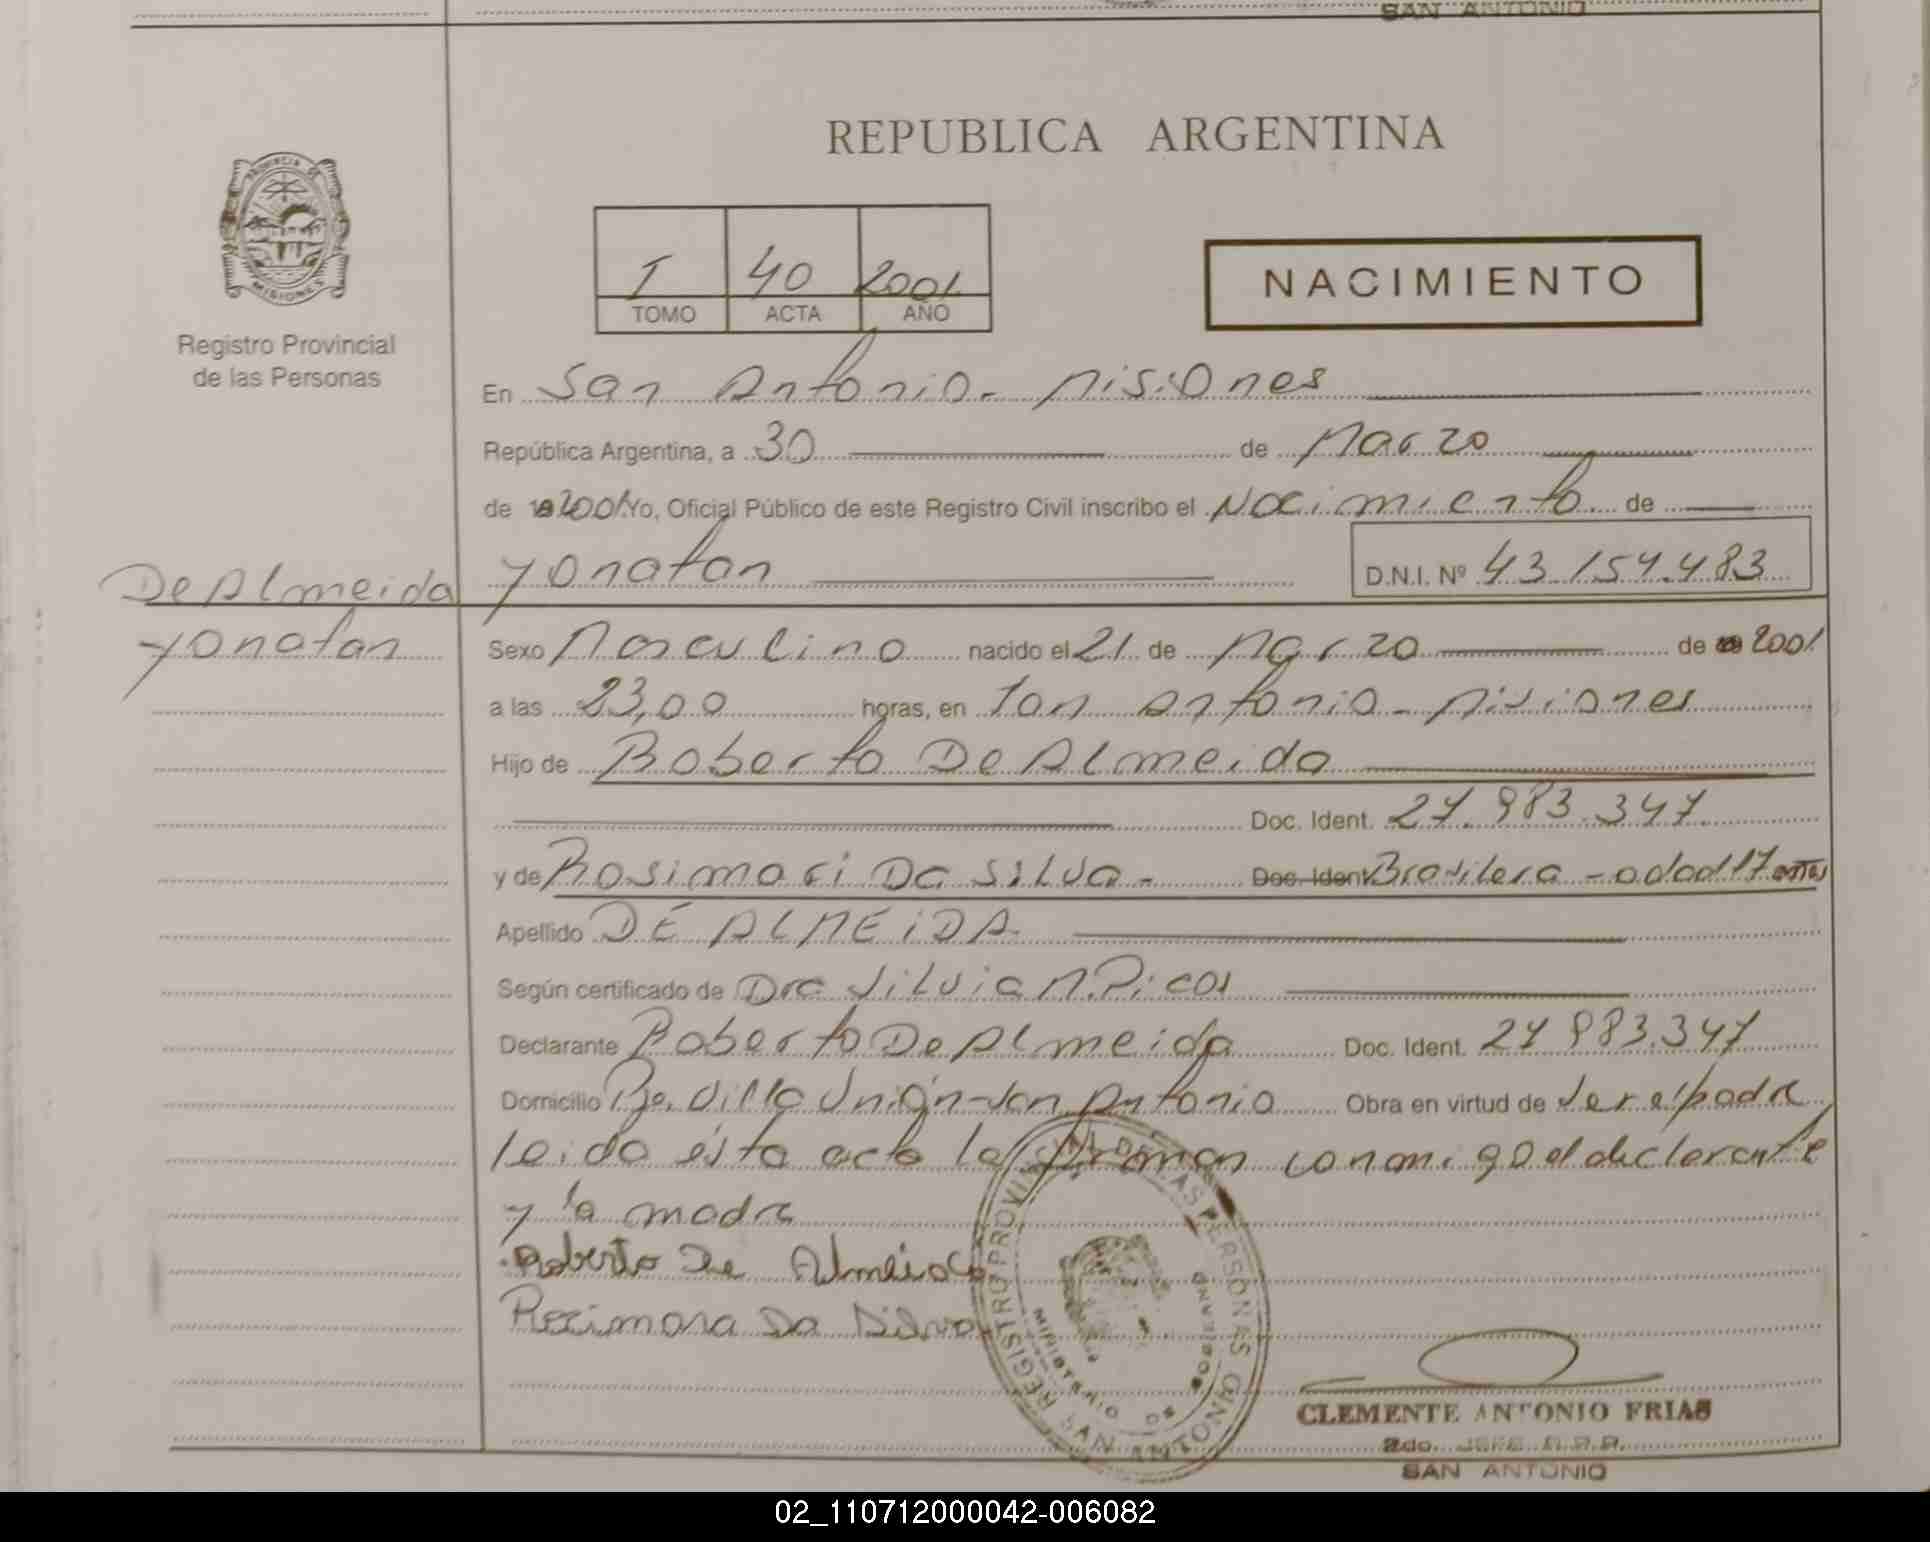 SAN ANTONIO
REPUBLICA ARGENTINA
PROVINCIA DE
MISIONES
Registro Provincial
de las Personas
I 40 2001
TOMO ACTA AÑO
NACIMIENTO
En San Antonio - Misiones
República Argentina, a 30 de Marzo
de 19 2001. Yo, Oficial Público de este Registro Civil inscribo el Nacimiento de
Yonatan D.N.I. Nº 43.154.483
De Almeida
Yonatan
Sexo Masculino nacido el 21 de Marzo de 19 2001
a las 23,00 horas, en San Antonio - Misiones
Hijo de Roberto De Almeida
Doc. Ident. 27.983.347
y de Rosimari Da Silva - Doc. Ident Brasilera - edad 17 años
Apellido DE ALMEIDA
Según certificado de Dra Silvia M. Picos
Declarante Roberto De Almeida Doc. Ident. 27 983.347
Domicilio Bo. Villa Unión - San Antonio Obra en virtud de ser el padre
leida ésta acta la firman conmigo el declarante
y la madre
Roberto De Almeida
Rozimara Da Silva
REGISTRO PROVINCIAL DE LAS PERSONAS
MINISTERIO DE GOBIERNO
SAN ANTONIO
CLEMENTE ANTONIO FRIAS
2do. JEFE R.P.P.
SAN ANTONIO
02_110712000042-006082